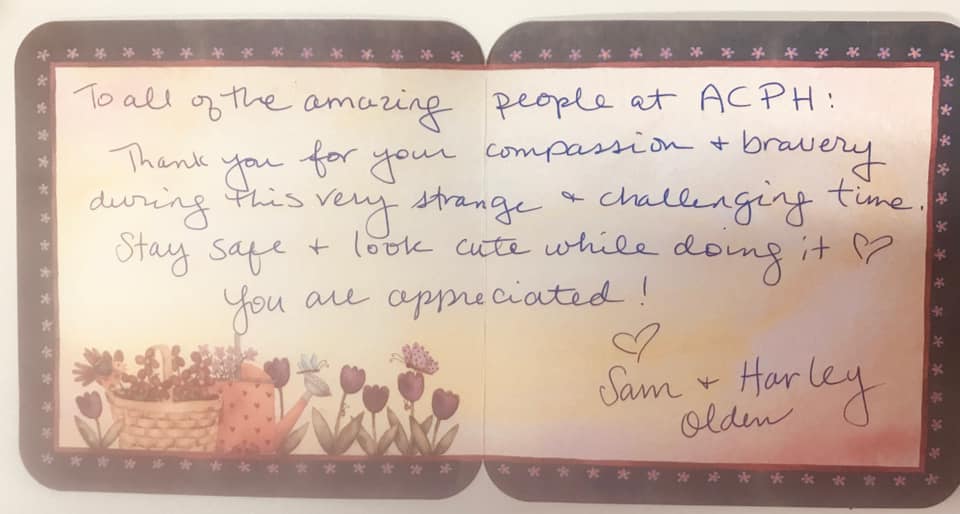 To all of the amazing people at ACPH:
Thank you for your compassion + bravery
during this very strange + challenging time.
Stay safe + look cute while doing it ♡
You are appreciated!
♡
Sam + Harley
Olden